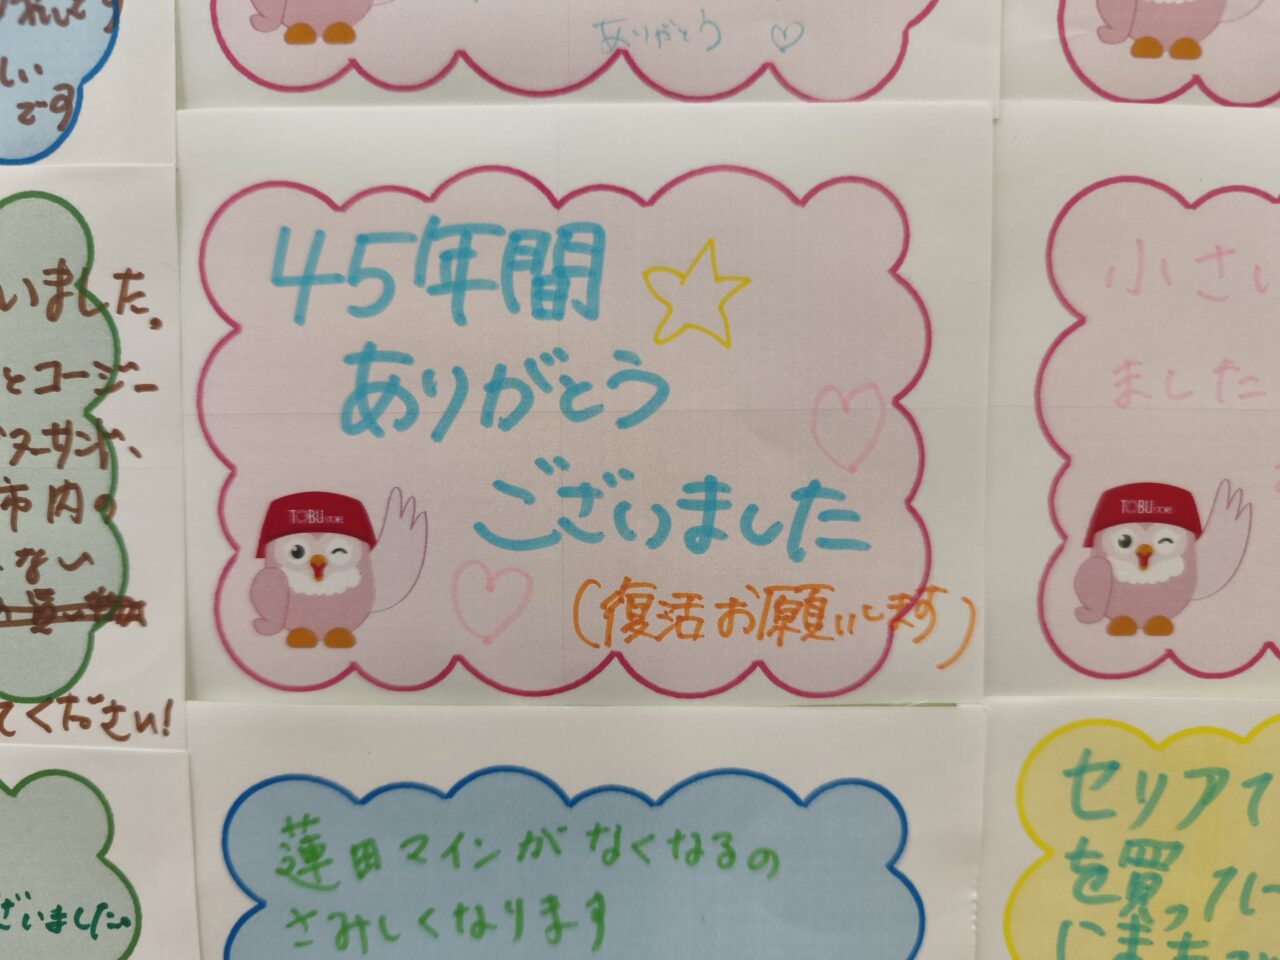 ありがとう ♡
です
いました。
とコージー
市内の
ない
てください!
ざいました。
45年間
ありがとう
ございました
(復活お願いします)
TOBU STORE
小さい
ました
TOBU STORE
蓮田マインがなくなるの
さみしくなります
セリアで
を買った